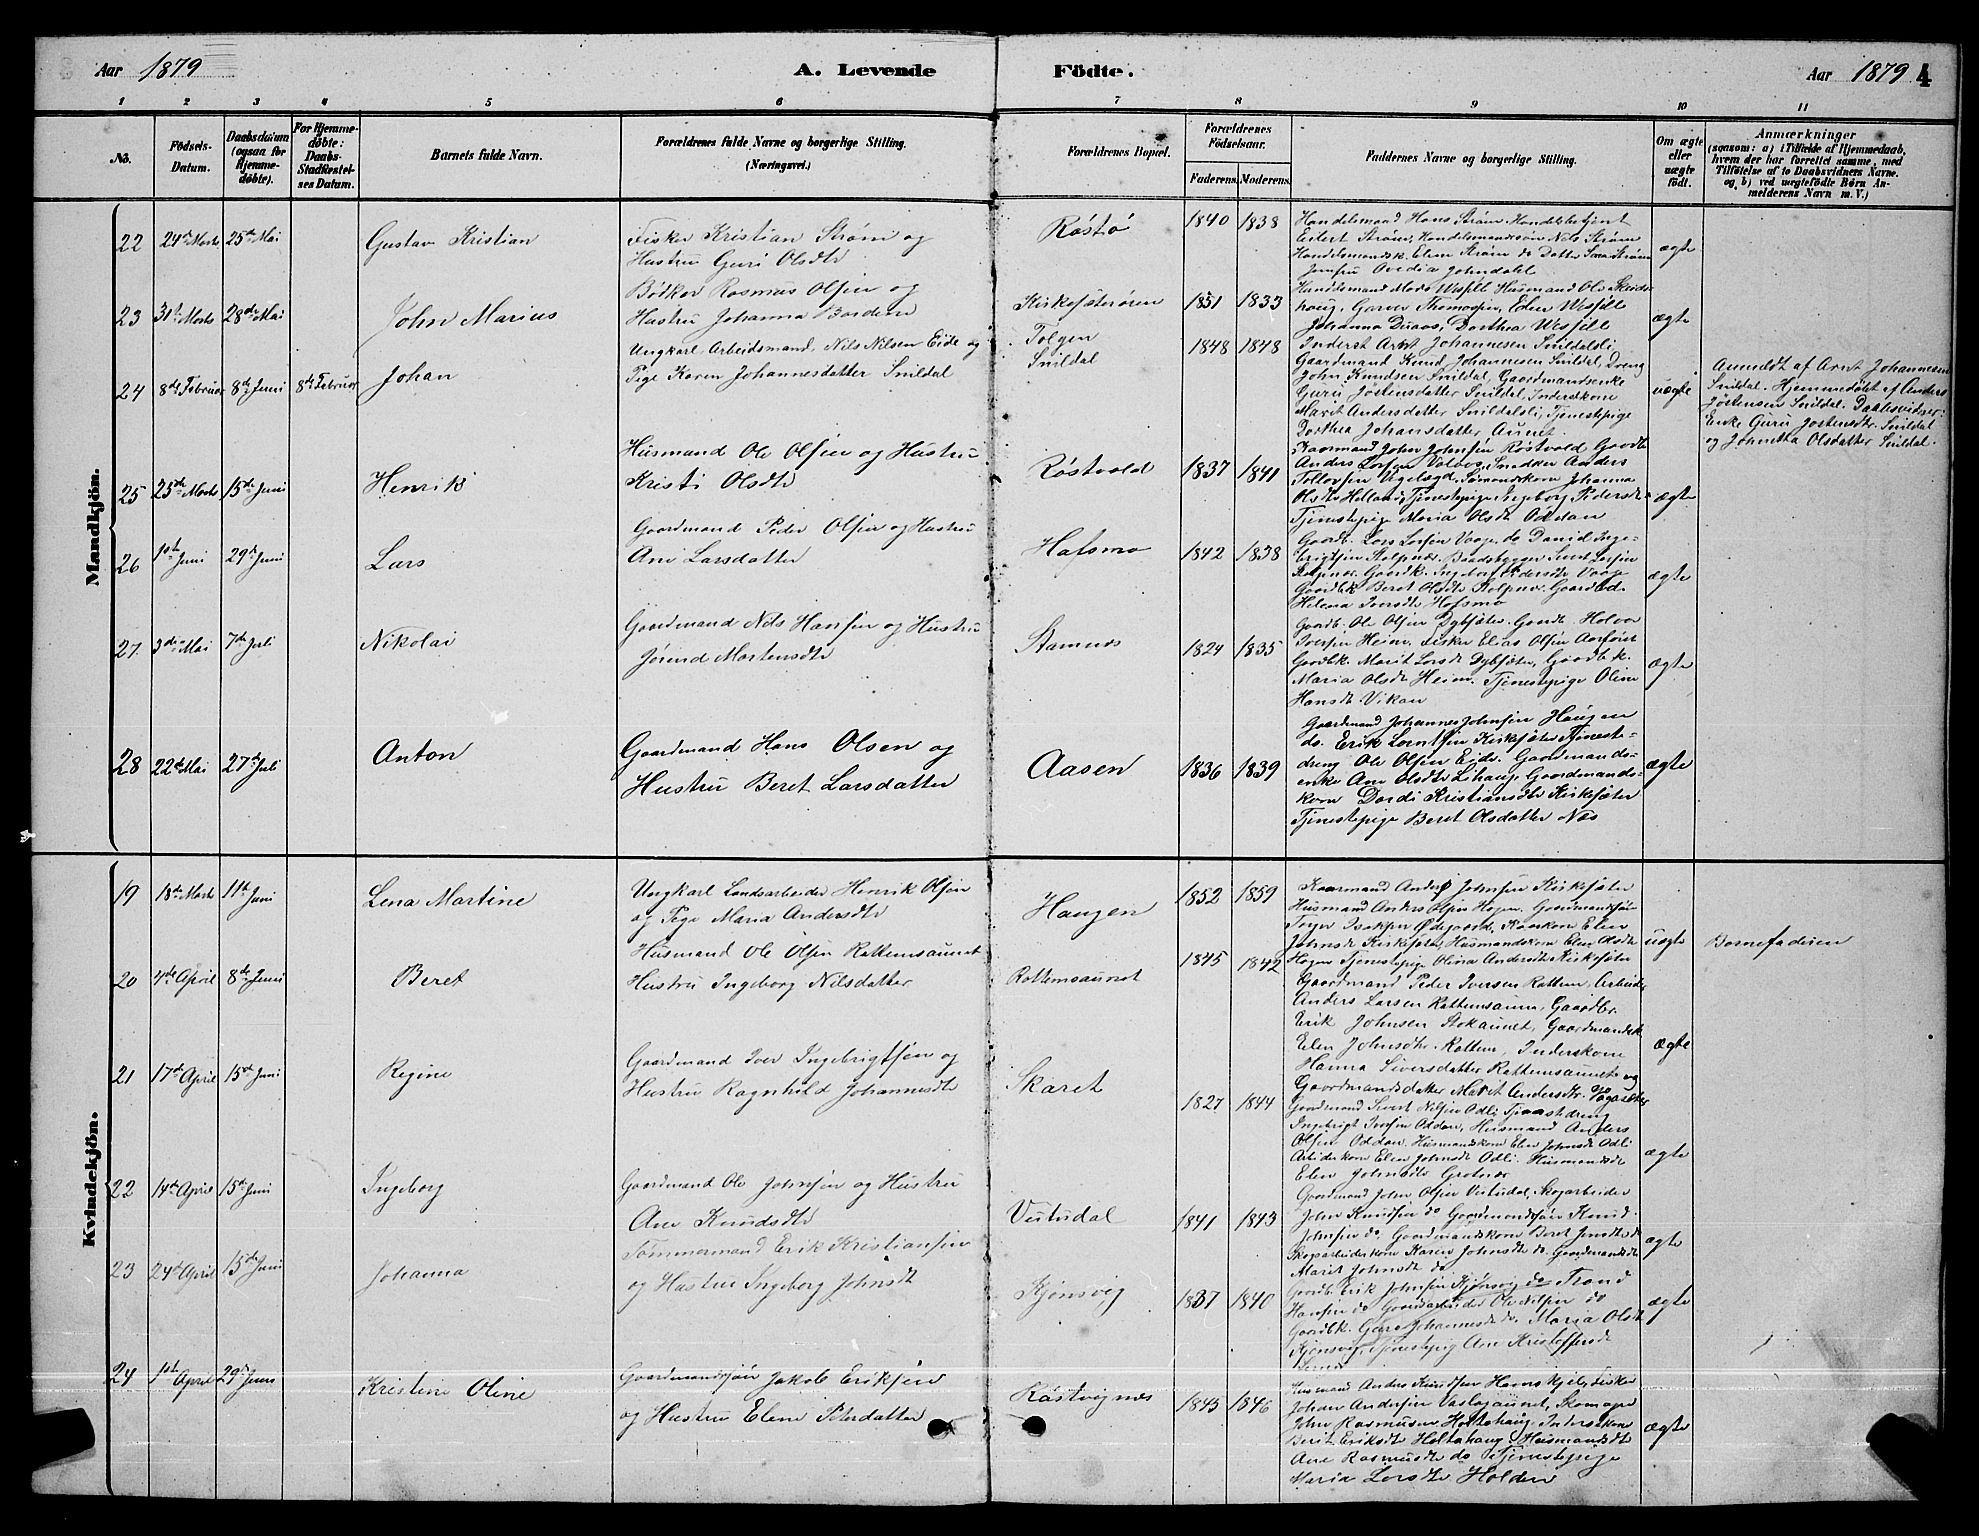 Aar 1879
A. Levende
Födte.
Aar 1879
4
1 2 3 4 5 6 7 8 9 10 11
No.
Födsels-
Datum.
Daabsdatum
(ogsaa for
Hjemme-
döbte).
For Hjemme-
döbte:
Daabs-
Stadfæstel-
ses Datum.
Barnets fulde Navn.
Forældrenes fulde Navne og borgerlige Stilling.
(Næringsvei.)
Forældrenes Bopæl.
Forældrenes
Födselsaar.
Faderens. Moderens.
Faddernes Navne og borgerlige Stilling.
Om ægte
eller
uægte
født.
Anmærkninger
(saasom: a) i Tilfælde af Hjemmedaab,
hvem der har forrettet samme, med
Tilföielse af to Daabsvidners Navne.
og b) ved uægtefödte Börn An-
melderens Navn m. V.)
Mandkjön.
22 24de Marts 25de Mai
Gustav Kristian
Fisker Kristian Strøm og
Hustru Guri Olsdtr
Røstø
1840 1838
Handelsmand Hans Strøm, Handelsbetjent
Eilert Strøm, Handelsmandssøn Nils Strøm
Handelsmandsk. Elen Strøm do Datter Strøm
Jomfru Johndahl
ægte
23 31te Marts 28de Mai
John Marius
Bødker Rasmus Olsen og
Hustru Johanna
Kirkesæterøren
1851 1833
Handelsmand Wesfell Husmand Ole
Elen Wesfell
Johanna Duaas, Dorthea Wesfell
ægte
24 8de Februar 8de Juni 8de Februar
Johan
Ungkarl Arbeidsmand, Nils Nilsen Eide og
Pige Karen Johannesdatter Snildal
Tolgen
Snildal
1848 1848
Inderst Arnt Johannesen Snildalsli
Gaardmand Knud Johannesen Snildal, Dreng
John Knudsen Snildal, Gaardmandsenke
Guru Jøstensdatter Snildal, Inderstkone
Marit Andersdatter Snildalsli, Tjenestepige
Dorthea Johansdatter Aunet
uægte
Anmeldt af Arnt Johannesen
Snildal. Hjemmedøbt af Anders
Jøstensen Snildal. Daabsvidner:
Enke Guru Jøstensdtr. Snildal
og Johnetta Olsdatter Snildal.
25 25de Marts 15de Juni
Henrik
Husmand Ole Olsen og Hustru
Kristi Olsdtr
Røstvold
1837 1841
John Johnsen Røstvold Gaardbr
Anders Snedker Anders
Johanna
Olsdtr Helland, Tjenestepige Ingeborg Pedersdtr
Tjenestepige Maria Olsdtr Oddan
ægte
26 1ste Juni 29de Juni
Lars
Gaardmand Peder Olsen og Hustru
Ane Larsdatter
Hafsmo
1842 1838
Gaardb. Lars Larsen Vaage, do Daniel Inge-
brigtsen Stolpnes, Baadsbygger Sivert Larsen
Stolpnes, Gaardk. Ingeborg Pedersdtr Vaage
Gaardbk Beret Olsdtr Stolpnes.
Helena Iversdtr Hafsmo
ægte
27. 3die Mai 7de Juli
Nikolai
Gaardmand Nils Hansen og Hustru
Jørend Mortensdtr
Stamnes
1824 1835
Gaardb. Ole Olsen Dybsæter, Gaardb Halvor
Iversen Heim, Fisker Elias Olsen
Gaardbk. Marit Larsdtr Dybsæter, Gaardb.k.
Maria Olsdtr Heim. Tjenestepige Oline
Hansdtr Vikan
ægte
28 22de Mai 27de Juli
Anton
Gaardmand Hans Olsen og
Hustru Beret Larsdatter
Aasen
1836 1839
Gaardmand Johannes Johnsen Haugen
do. Erik Lorntsen Kirksæter Tjeneste-
dreng Ole Olsen Eide. Gaardmands-
enke Ane Olsdtr Lihaug, Gaardmands-
kone Dordi Kristiansdtr Kirksæter
Tjenestepige Beret Olsdatter Næs
ægte
Kvindekjön.
19 18de Marts 11te Juni
Lena Martine
Ungkarl Landarbeider Henrik Olsen
og Pige Maria Andersdtr
Haugen
1852 1859
Anders Johnsen Kirksæter
Husmand Anders Olsen Hagen. Gaardmandssøn
Isaksen Ødegaard, Elen
Johnsdtr Kirksæter, Husmandskone Elen Olsdtr
Hagen Tjenestepige Olina Andersdtr Kirksæter
uægte
Barnefaderen
20 4de April 8de Juni
Beret
Husmand Ole Olsen Rattemsaunet
Hustru Ingeborg Nilsdatter
Rottemsaunet
1845 1842
Gaardmand Peder Iversen Rattem, Arbeider
Anders Larsen Rattemsaune, Gaardbr.
Erik Johnsen Stokaunet, Gaardmandsk
Elen Johnsdtr. Rattem, Inderskone
Hanna Siversdatter Rattemsaunet og
Gaardmandsdatter Marit Andersdtr.
ægte
21 17de April 15de Juni
Regine
Gaardmand Iver Ingebrigtsen og
Hustru Ragnhild Johannesdtr
Skaret
1827 1844
Gaardmand Sivert Nilsen Odli, Tjenestedreng
Ingebrigt Iversen Oddan, Husmand Anders
Olsen Oddan, Husmandskone Elen Johnsdtr Odli
Arbeiderkone Elen Johnsdtr Odli. Husmandsdtr
Elen Johnsdtr Grotnes
ægte
22 14de April 15de Juni
Ingeborg
Gaardmand Ole Johnsen og Hustru
Ane Knudsdtr
Vuttudal
1841 1843
Gaardmand John Olsen Vuttudal, Skogarbeider
John Knudsen do Gaardmandssøn Knud
Johnsen do, Gaardmandskone Beret Jonsdtr do
Skogarbeiderkone Karen Johnsdtr do. Gaardmandsdtr
Marit Johnsdtr do
ægte
23 24de April 15de Juni
Johanna
Tømmermand Erik Kristiansen
og Hustru Ingeborg Johnsdtr
Kjønsvig
1837 1840
Gaardb. Erik Johnsen Kjønsvig do Trond
Hansen do Gaardarbeider Ole Nilsen do
Gaardbk. Guro Johannesdtr do. Maria Olsdtr
Kjønsvig, Tjenestepig Ane Kristoffersdtr
ægte
24 1ste April 29de Juni
Kristine Oline
Gaardmandssøn Jakob Eriksen
og Hustru Elene Petersdatter
Røstvignes
1845 1846
Husmand Anders Knudsen Hamskjel, Fisker
Johan Andersen Vaslagaunet, Skomager
John Rasmusen Holtahaug, Inderskone
Berit Eriksdtr Holtahaug, Husmandsdtr
Ane Rasmusdtr do Tjenestepige
Maria Larsdtr Holden
ægte